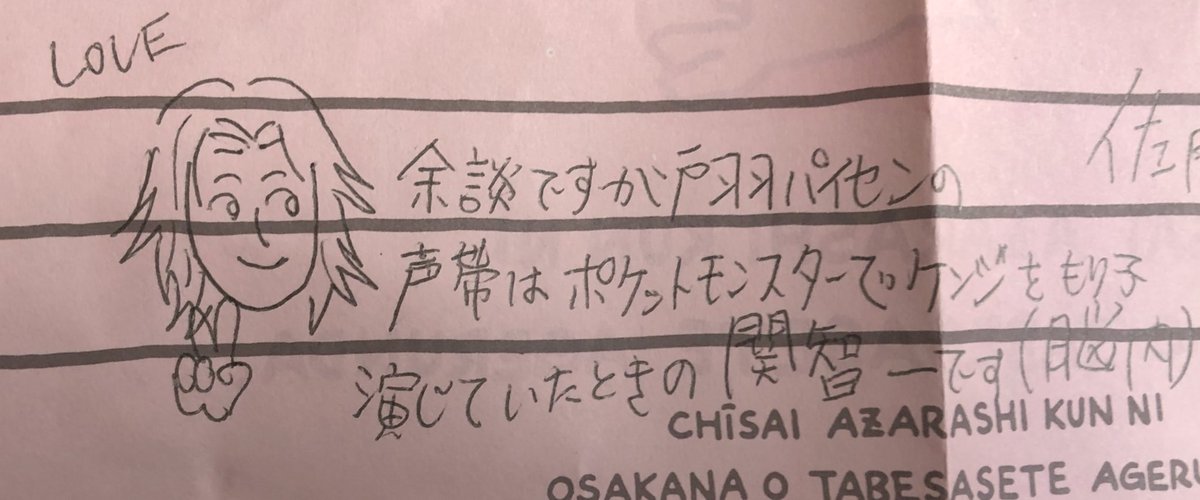 LOVE
余談ですが戸羽パイセンの
声帯はポケットモンスターでケンジをもり子
演じていたときの関智一です(脳内)
CHĪSAI AZARASHI KUN NI
OSAKANA O TABESASETE AGERU